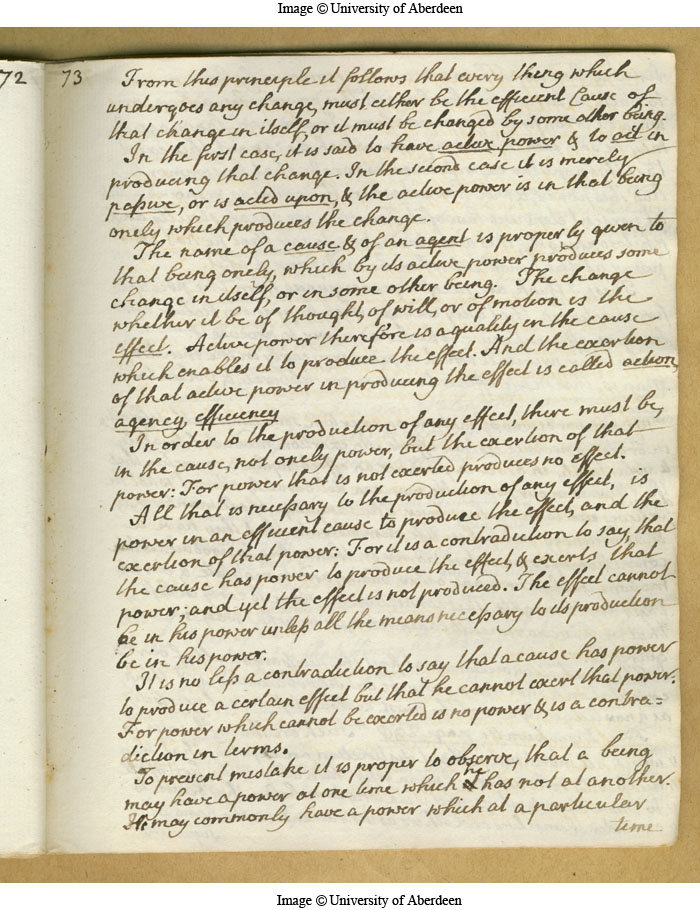 Image © University of Aberdeen
72 73
From this principle it follows that every thing which
undergoes any change, must either be the efficient Cause of
that change in itself, or it must be changed by some other being.
In the first case, it is said to have active power & to act in
producing that change. In the second case it is merely
passive, or is acted upon, & the active power is in that being
onely which produces the change.
The name of a cause & of an agent is properly given to
that being onely, which by its active power produces some
change in itself, or in some other being. The change
whether it be of thought, of will, or of motion is the
effect. Active power therefore is a quality in the cause
which enables it to produce the effect. And the exertion
of that active power in producing the effect is called action,
agency, efficiency
In order to the production of any effect, there must be,
in the cause, not onely power, but the exertion of that
power: For power that is not exerted produces no effect.
All that is necessary to the production of any effect, is
power in an efficient cause to produce the effect, and the
exertion of that power: For it is a contradiction to say, that
the cause has power to produce the effect, & exerts that
power; and yet the effect is not produced. The effect cannot
be in his power unless all the means necessary to its production
be in his power.
It is no less a contradiction to say that a cause has power
to produce a certain effect but that he cannot exert that power.
For power which cannot be exerted is no power & is a contra=
diction in terms.
To prevent mistake it is proper to observe, that a being
may have a power at one time which he has not at another.
He may commonly have a power which at a particular
time
Image © University of Aberdeen